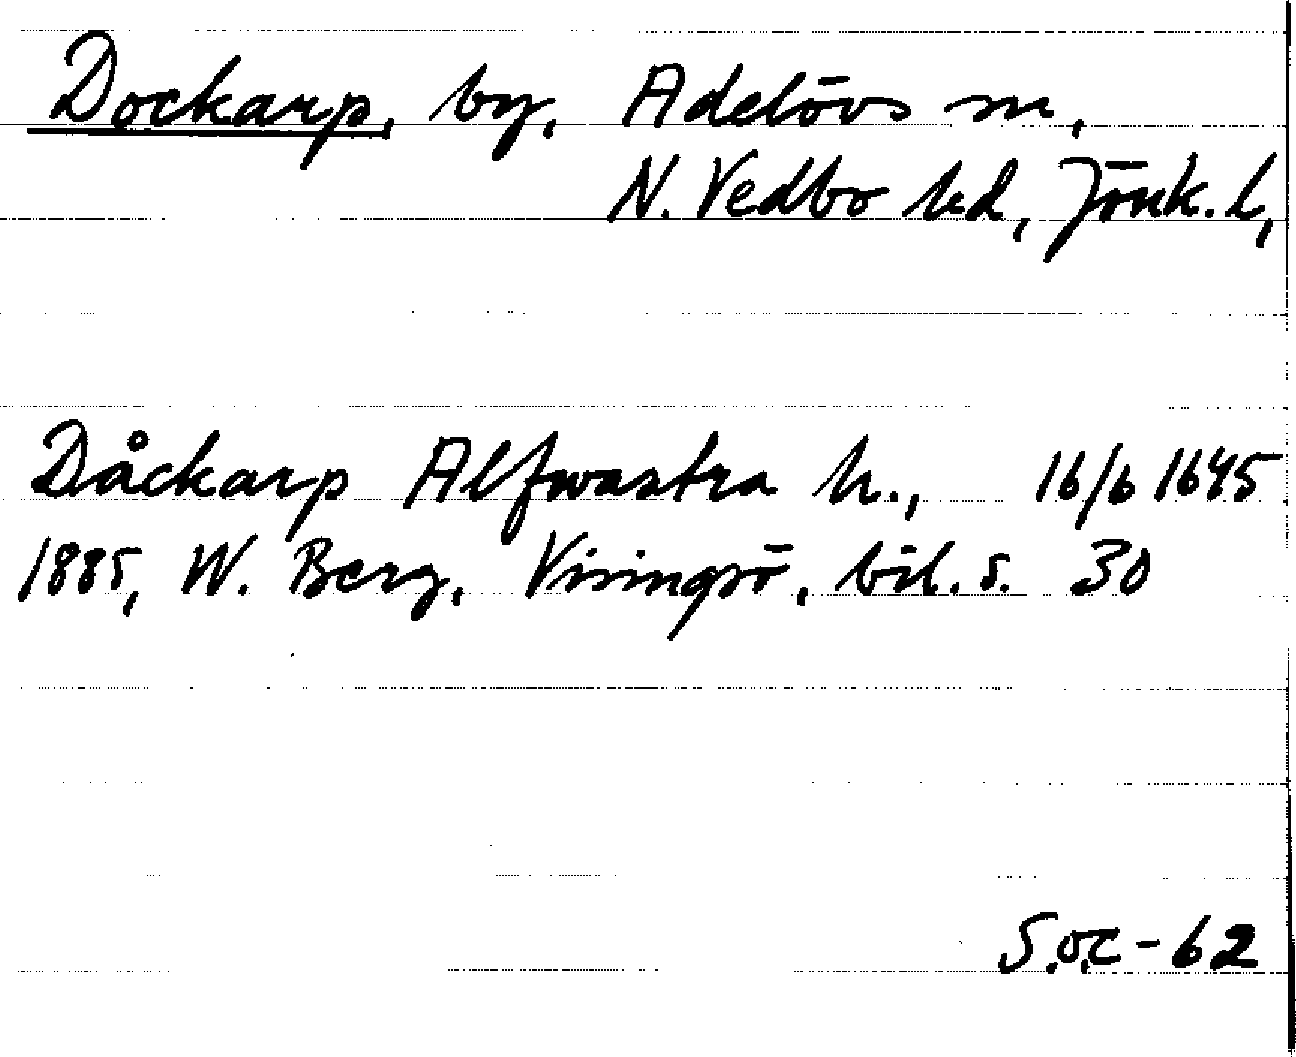 Dockarp, by, Adelövs sn,
N. Vedbo hd, Jönk. l,
Dåckarp Alfwastra h., 16/6 1645
1885, W. Berg, Visingsö, bil. s. 30
S.O.C-62